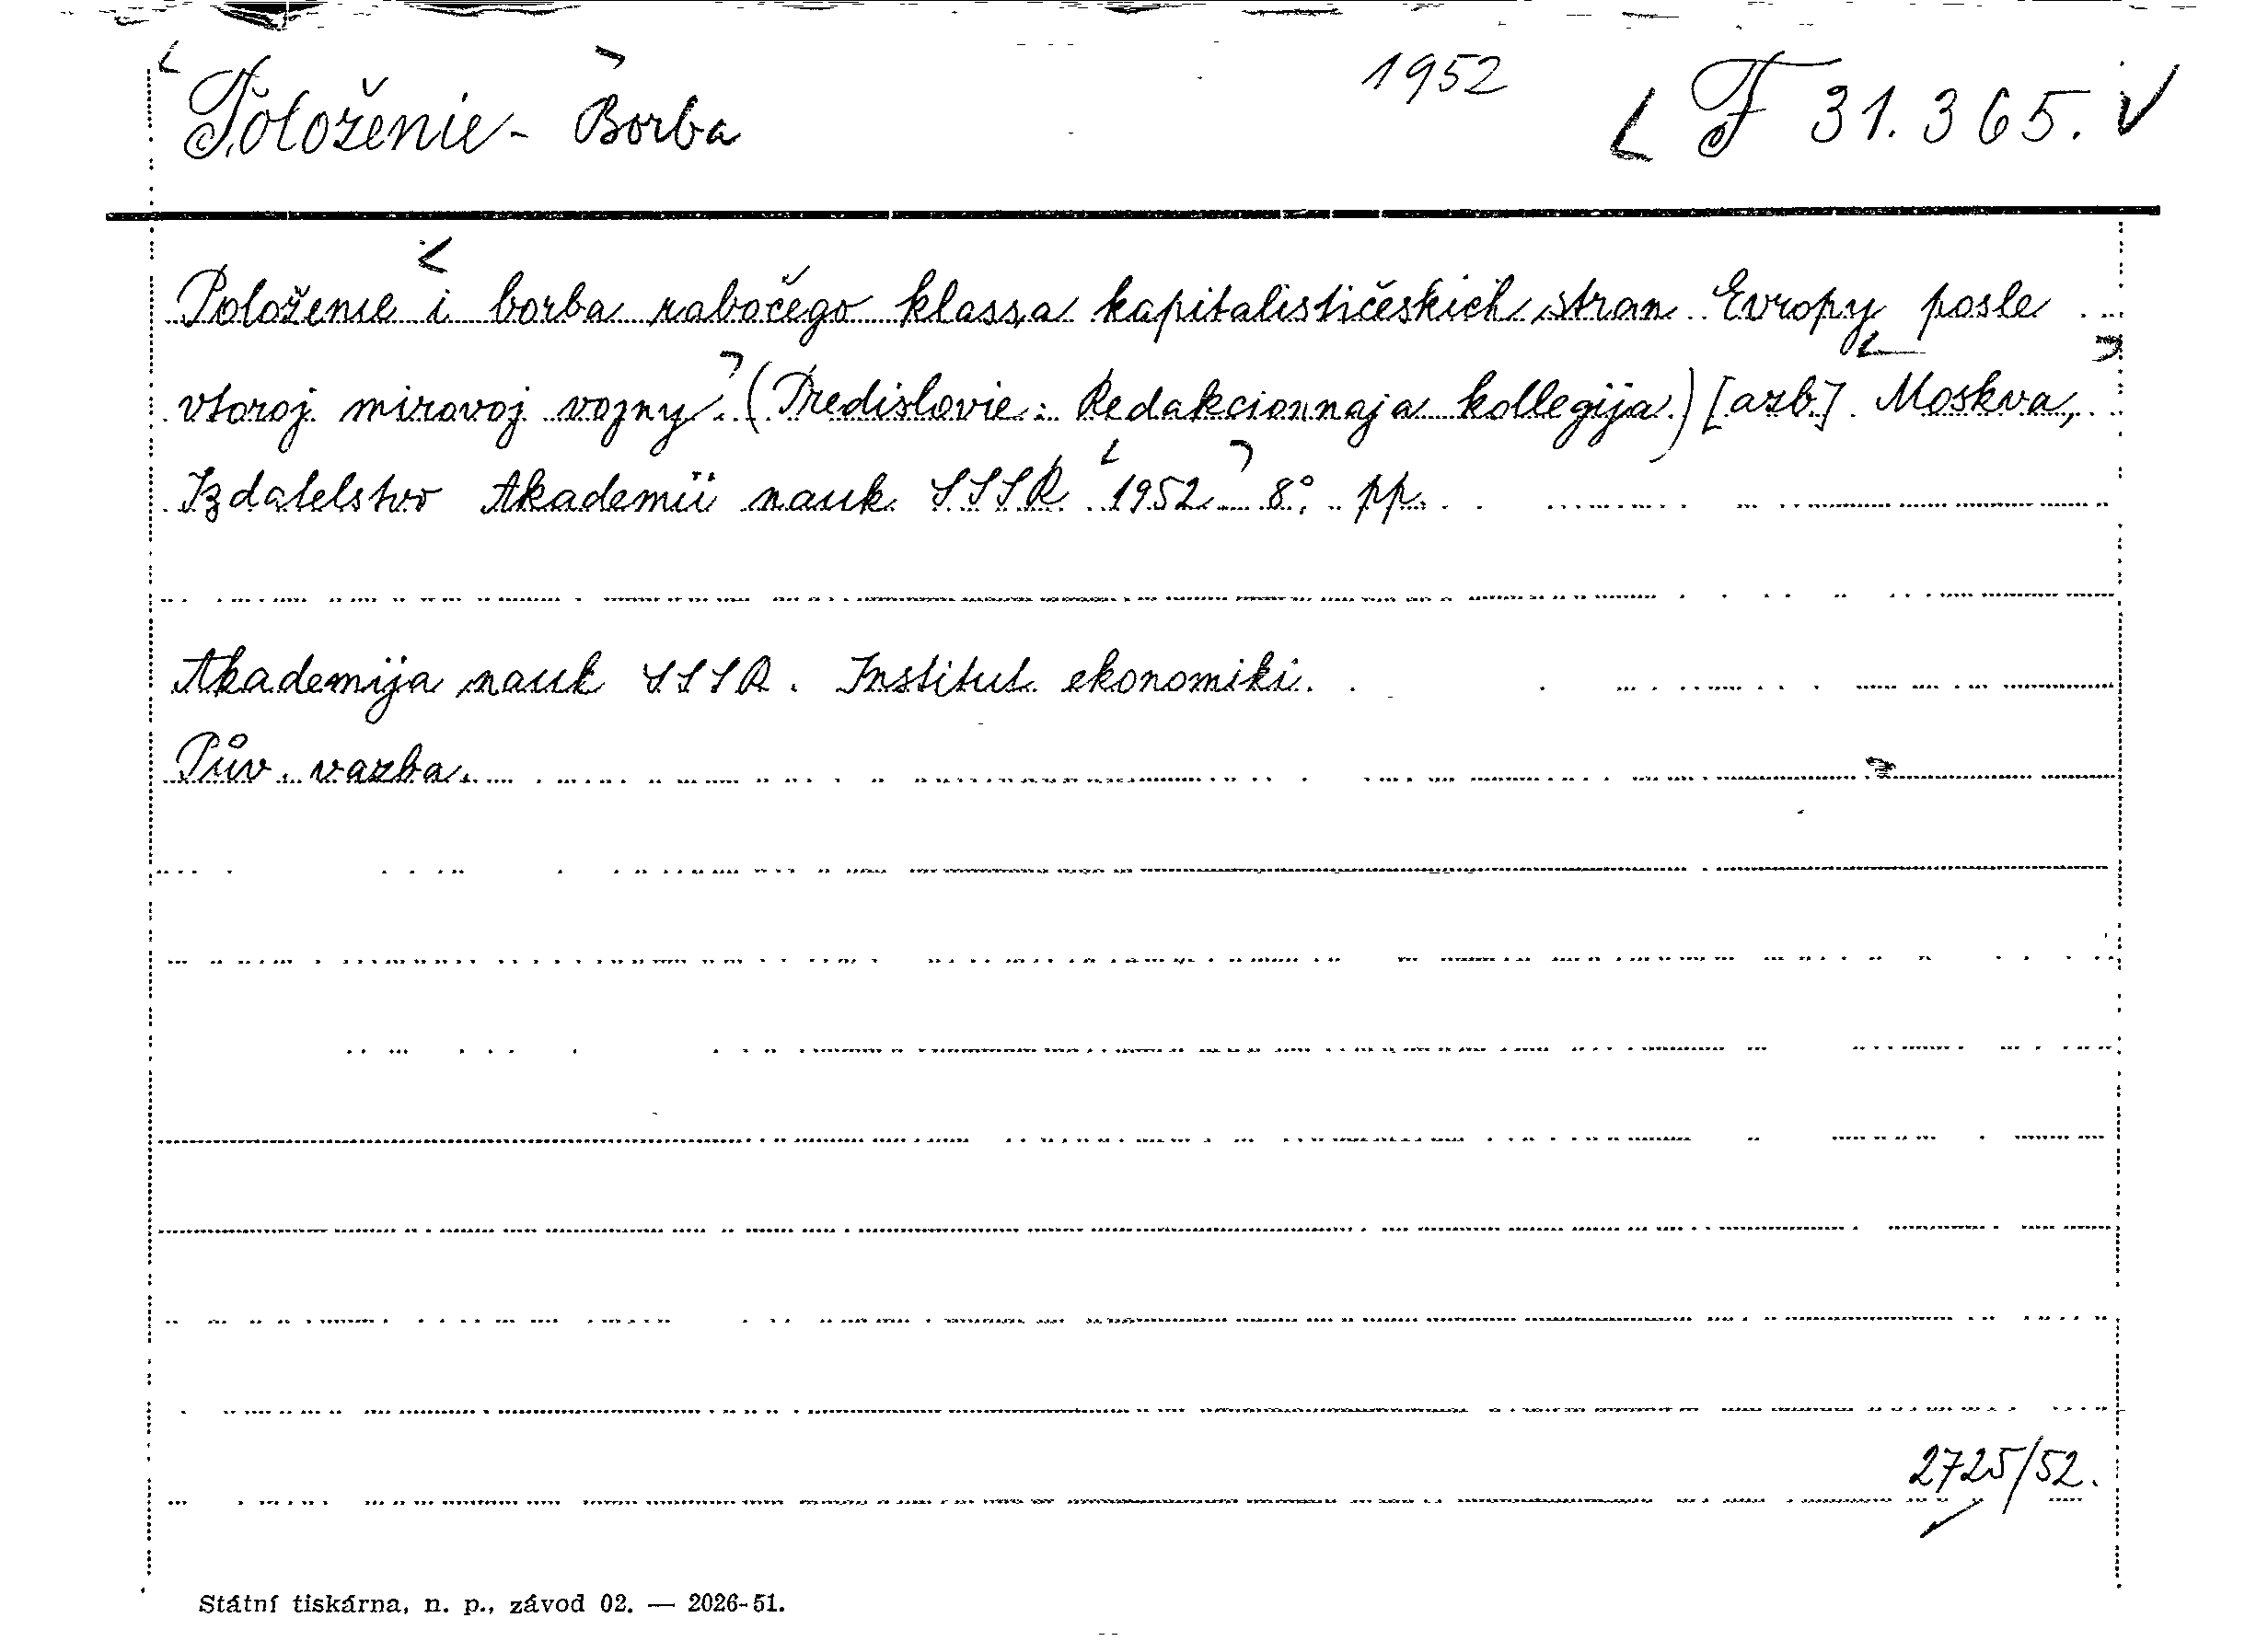 Položenie - Borba 1952 F 31.365.
Položenie i borba rabočego klassa kapitalističeskich stran Evropy posle
vtoroj mirovoj vojny. (Predislovie: Redakcionnaja kollegija.) [azb.] Moskva,
Izdatelstvo Akademii nauk SSSR 1952 8°. pp.
Akademija nauk SSSR. Institut ekonomiki.
Pův. vazba.
2725/52.
Státní tiskárna, n. p., závod 02. — 2026-51.